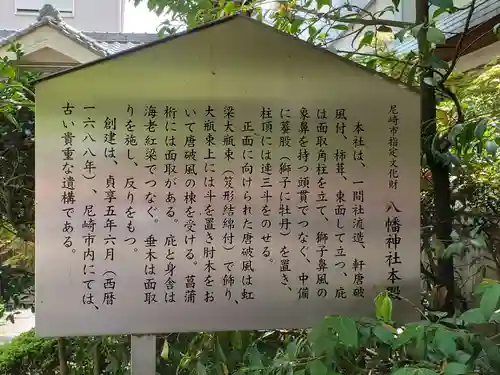 尼崎市指定文化財　八幡神社本殿
本社は、一間社流造、軒唐破
風付、柿葺、東面して立つ、庇
は面取角柱を立て、獅子鼻風の
象鼻を持つ頭貫でつなぐ。中備
に蟇股（獅子に牡丹）を置き、
柱頂には連三斗をのせる。
正面に向けられた唐破風は虹
梁大瓶束（笈形結綿付）で飾り、
大瓶束上には斗を置き肘木をお
いて唐破風の棟を受ける。菖蒲
桁には面取がある。庇と身舎は
海老虹梁でつなぐ。垂木は面取
りを施し、反りをもつ。
創建は、貞享五年六月（西暦
一六八八年）、尼崎市内にては、
古い貴重な遺構である。